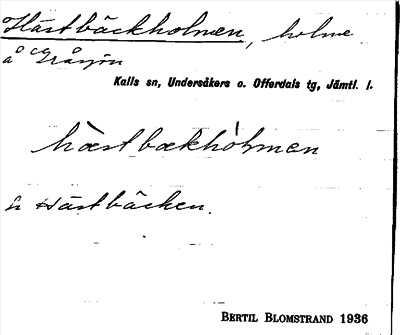 Hästbäckholmen, holme
å Gråsjön
Kalls sn, Undersåkers o. Offerdals tg, Jämtl. l.
hæstbækhòlmen
Hästbäcken.
BERTIL BLOMSTRAND 1936